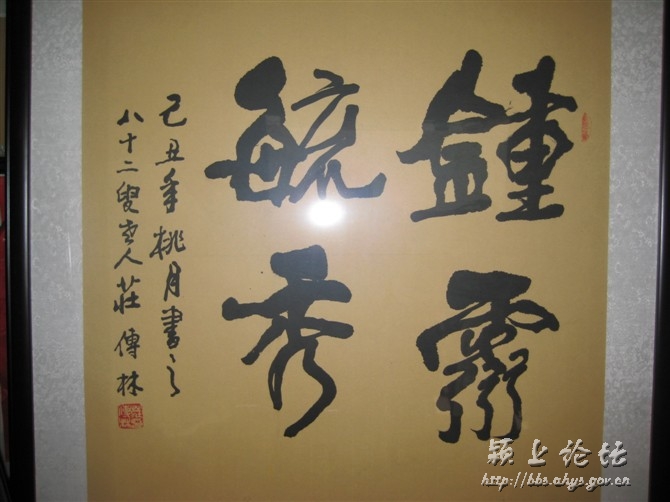 鍾靈
毓秀
己丑年桃月書之
八十二叟老人莊傳林
颍上论坛
http://bbs.ahys.gov.cn